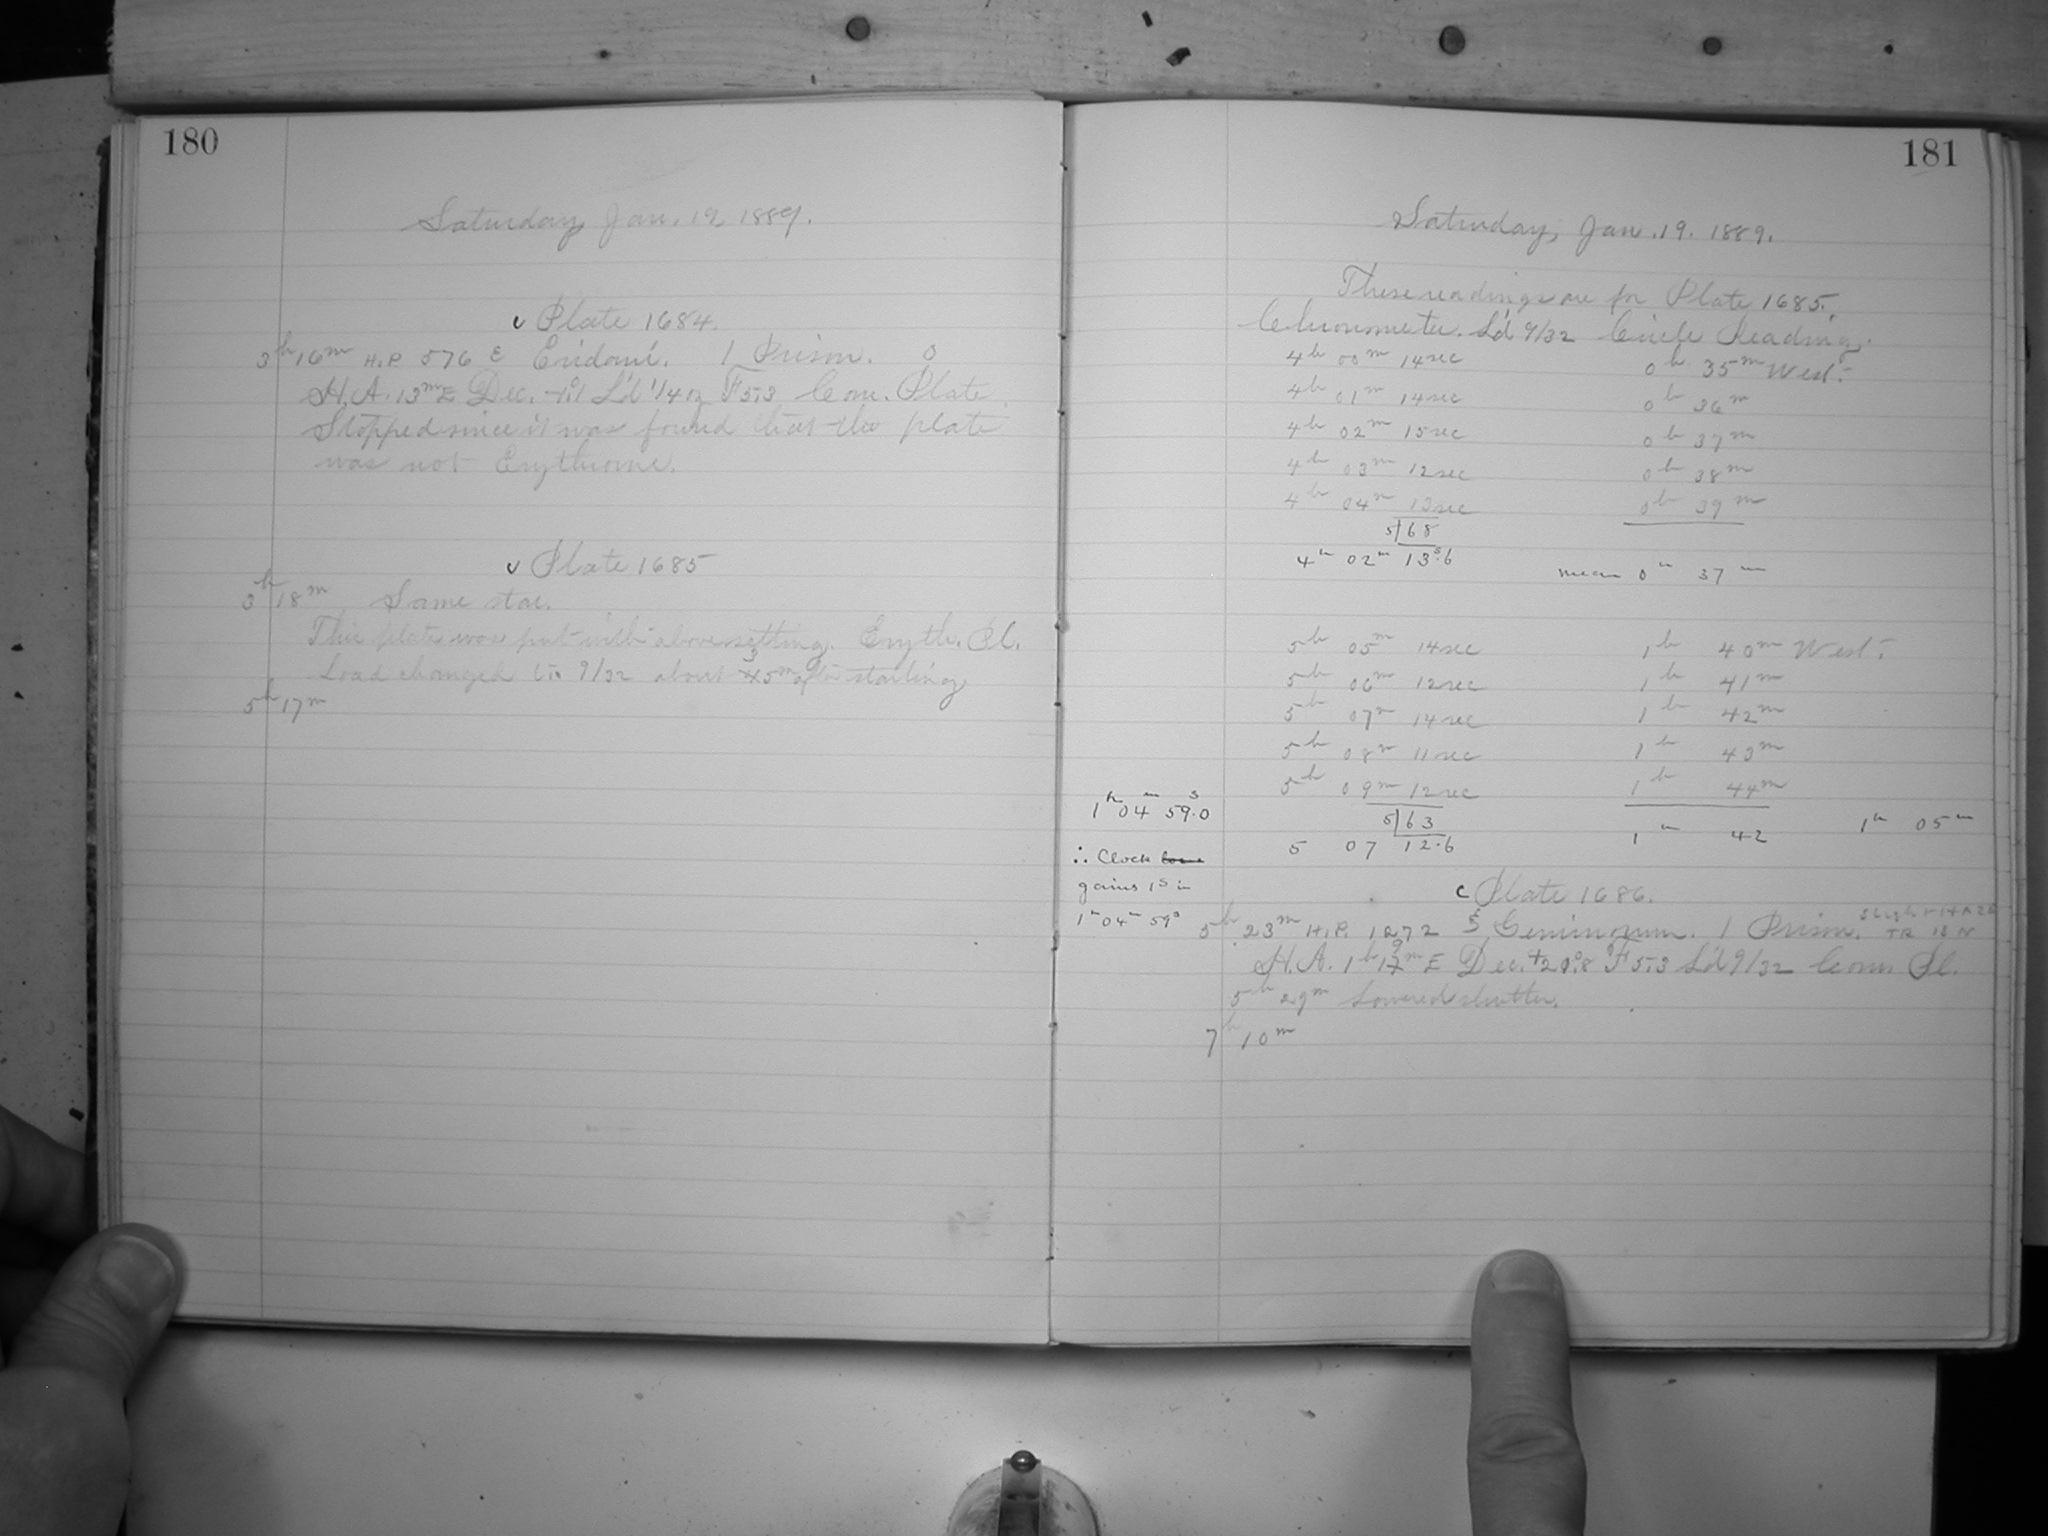 180
Saturday, Jan. 19, 1889.
c Plate 1684.
3h 16m H.P. 576 ε Eridani. 1 Prism. 0
H.A. 13m E Dec. -1°.1 L'd 1/4 oz F 5.3 Com. Plate.
Stopped since it was found that the plate
was not Erythrome.
c Plate 1685
3h 18m Same star.
This plate was put with above setting. Eryth. Pl.
Load changed to 9/32 about 35m after starting
5h 17m
181
Saturday, Jan. 19. 1889.
These readings are for Plate 1685.
Chronometer. L'd 9/32 Circle Reading.
4h 00m 14sec 0h 35m West.
4h 01m 14sec 0h 36m
4h 02m 15sec 0h 37m
4h 03m 12sec 0h 38m
4h 04m 13sec 0h 39m
5|68
4h 02m 13s.6 mean 0h 37m
5h 05m 14sec 1h 40m West.
5h 06m 12sec 1h 41m
5h 07m 14sec 1h 42m
5h 08m 11sec 1h 43m
5h 09m 12sec 1h 44m
5|63
5 07 12.6 1h 42 1h 05m
1h 04m 59s.0
∴ Clock lose
gains 1s in
1h 04m 59s
c Plate 1686.
5h 23m H.P. 1272 ξ Geminorum. 1 Prism. Slight Haze
H.A. 1h 19m E Dec. +20°.8 F 5.3 L'd 9/32 Com. Pl.
5h 29m Lowered shutter.
7h 10m